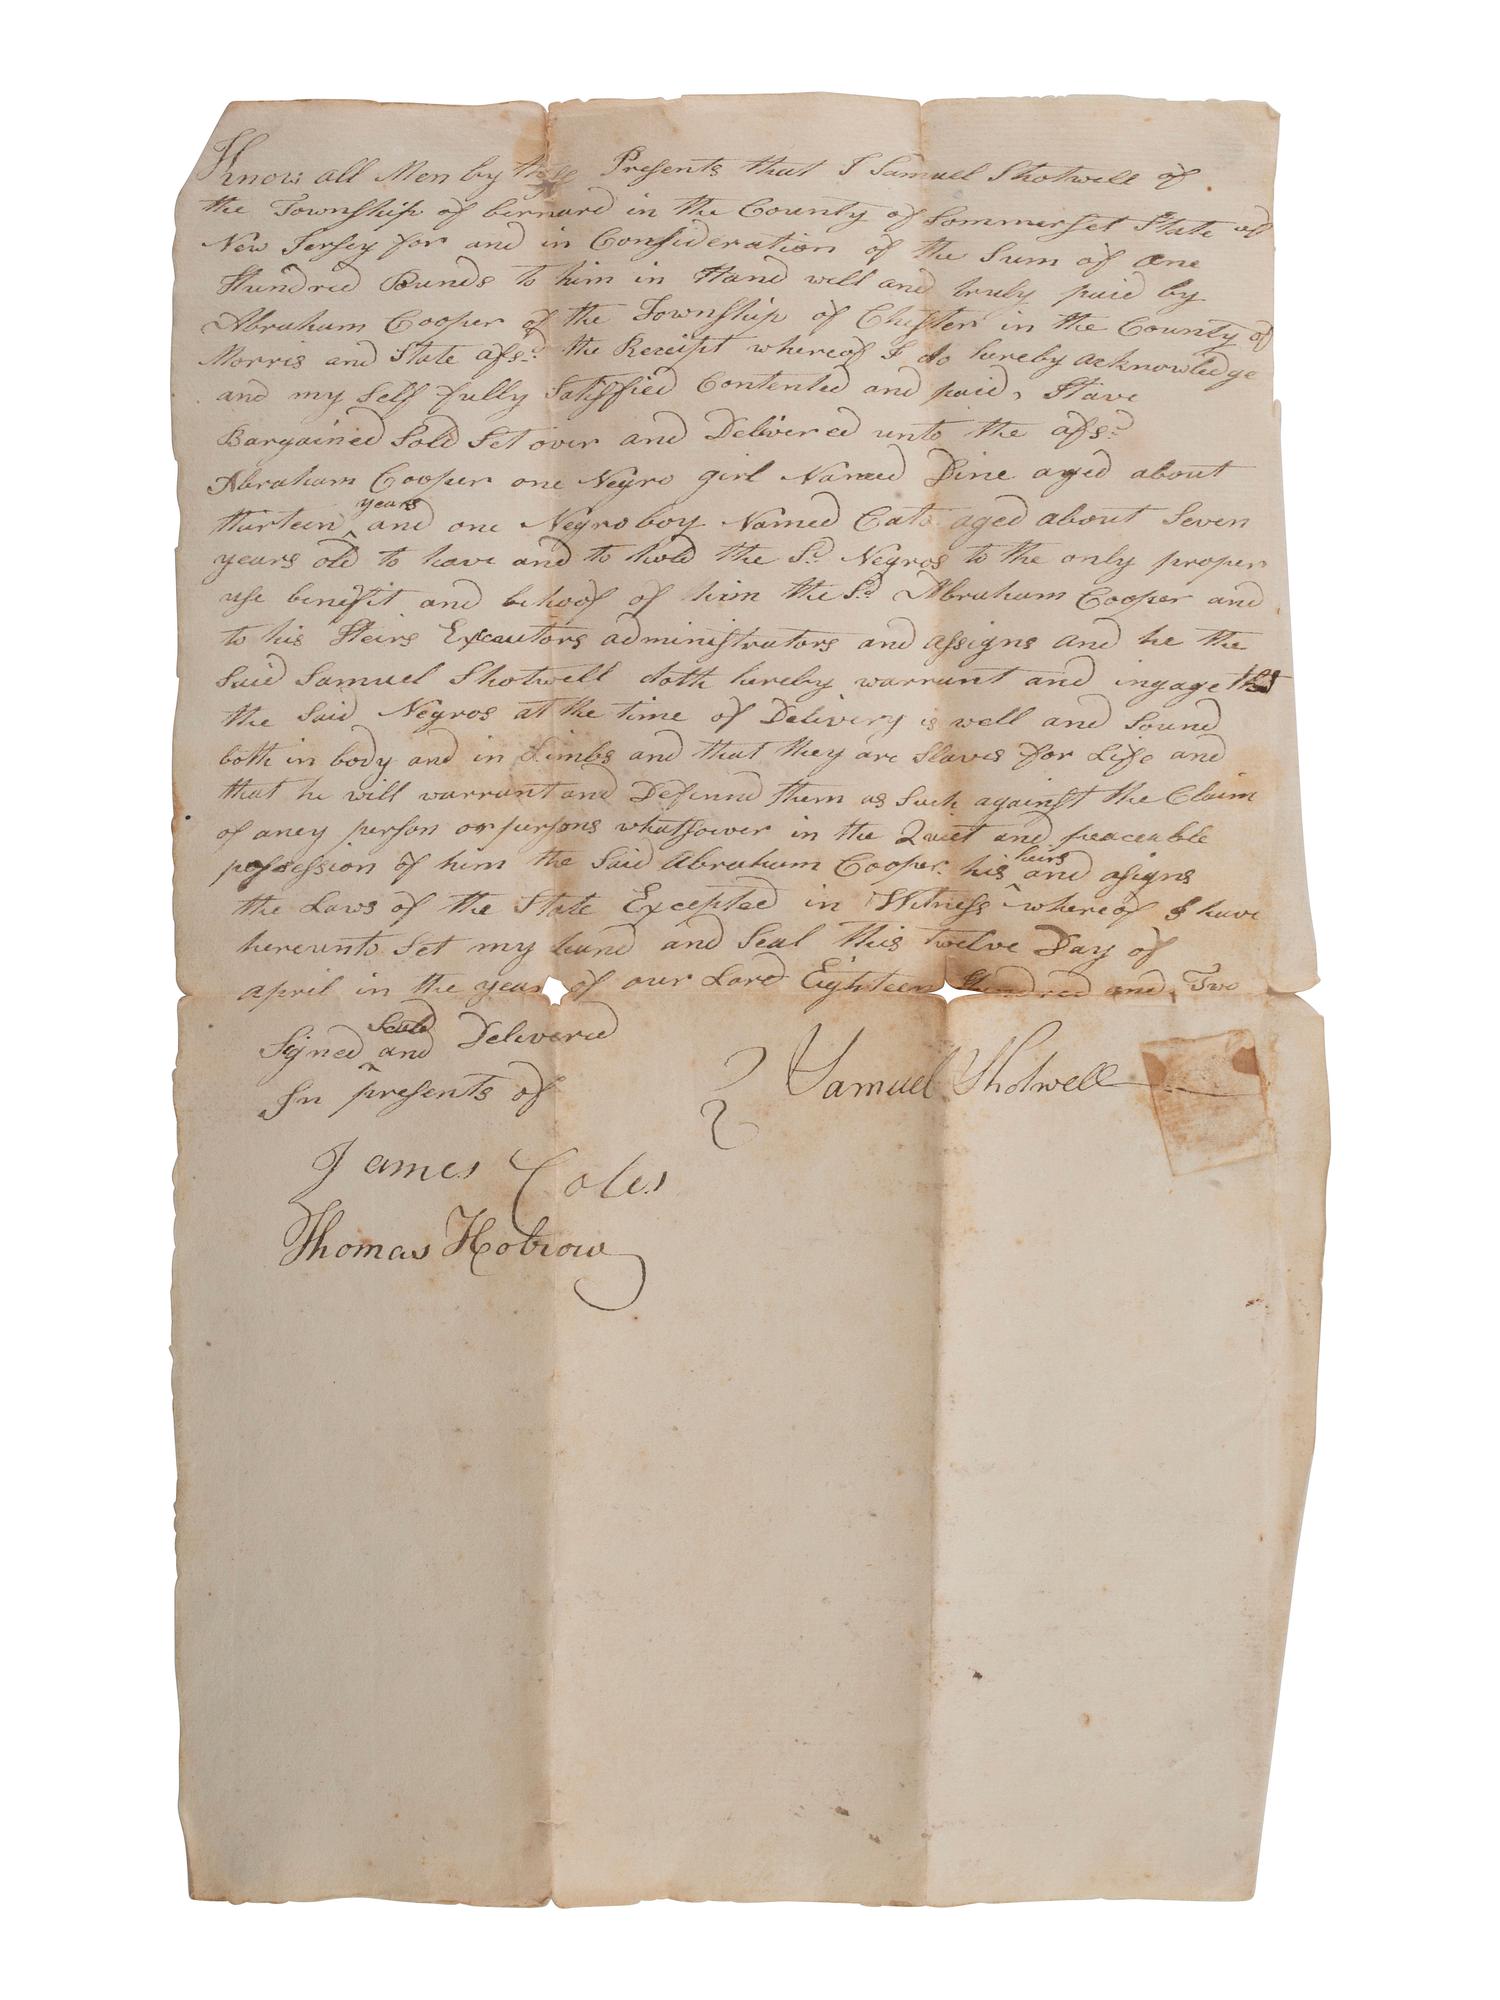 Know all Men by these Presents that I Samuel Shotwell of
the Township of bernard in the County of Sommerset State of
New Jersey for and in Consideration of the Sum of one
Hundred Pounds to him in Hand well and truly paid by
Abraham Cooper of the Township of Chester in the County of
Morris and State afsd. the Receipt whereof I do hereby acknowledge
and my Self fully Satisfied Contented and paid, Have
Bargained Sold Set over and Delivered unto the afsd.
Abraham Cooper one Negro girl Named Dine aged about
thirteen ^years and one Negro boy Named Cato aged about Seven
years old to have and to hold the Sd. Negros to the only proper
use benefit and behoof of him the Sd. Abraham Cooper and
to his Heirs Executors administrators and assigns and he the
Said Samuel Shotwell doth hereby warrant and ingage that
the Said Negros at the time of Delivery is well and Sound
both in body and in Limbs and that they are Slaves for Life and
that he will warrant and Defennd them as Such against the Claim
of aney person or persons whatsoever in the Quiet and peaceable
possession of him the Said Abraham Cooper his ^heirs and asigns
the Laws of the State Excepted in Witness whereof I have
hereunto Set my hand and Seal this twelve Day of
april in the year of our Lord Eighteen Hundred and Two
Signed ^Seald and Delivered
In presents of
Samuel Shotwell
James Coles
Thomas Hobrow